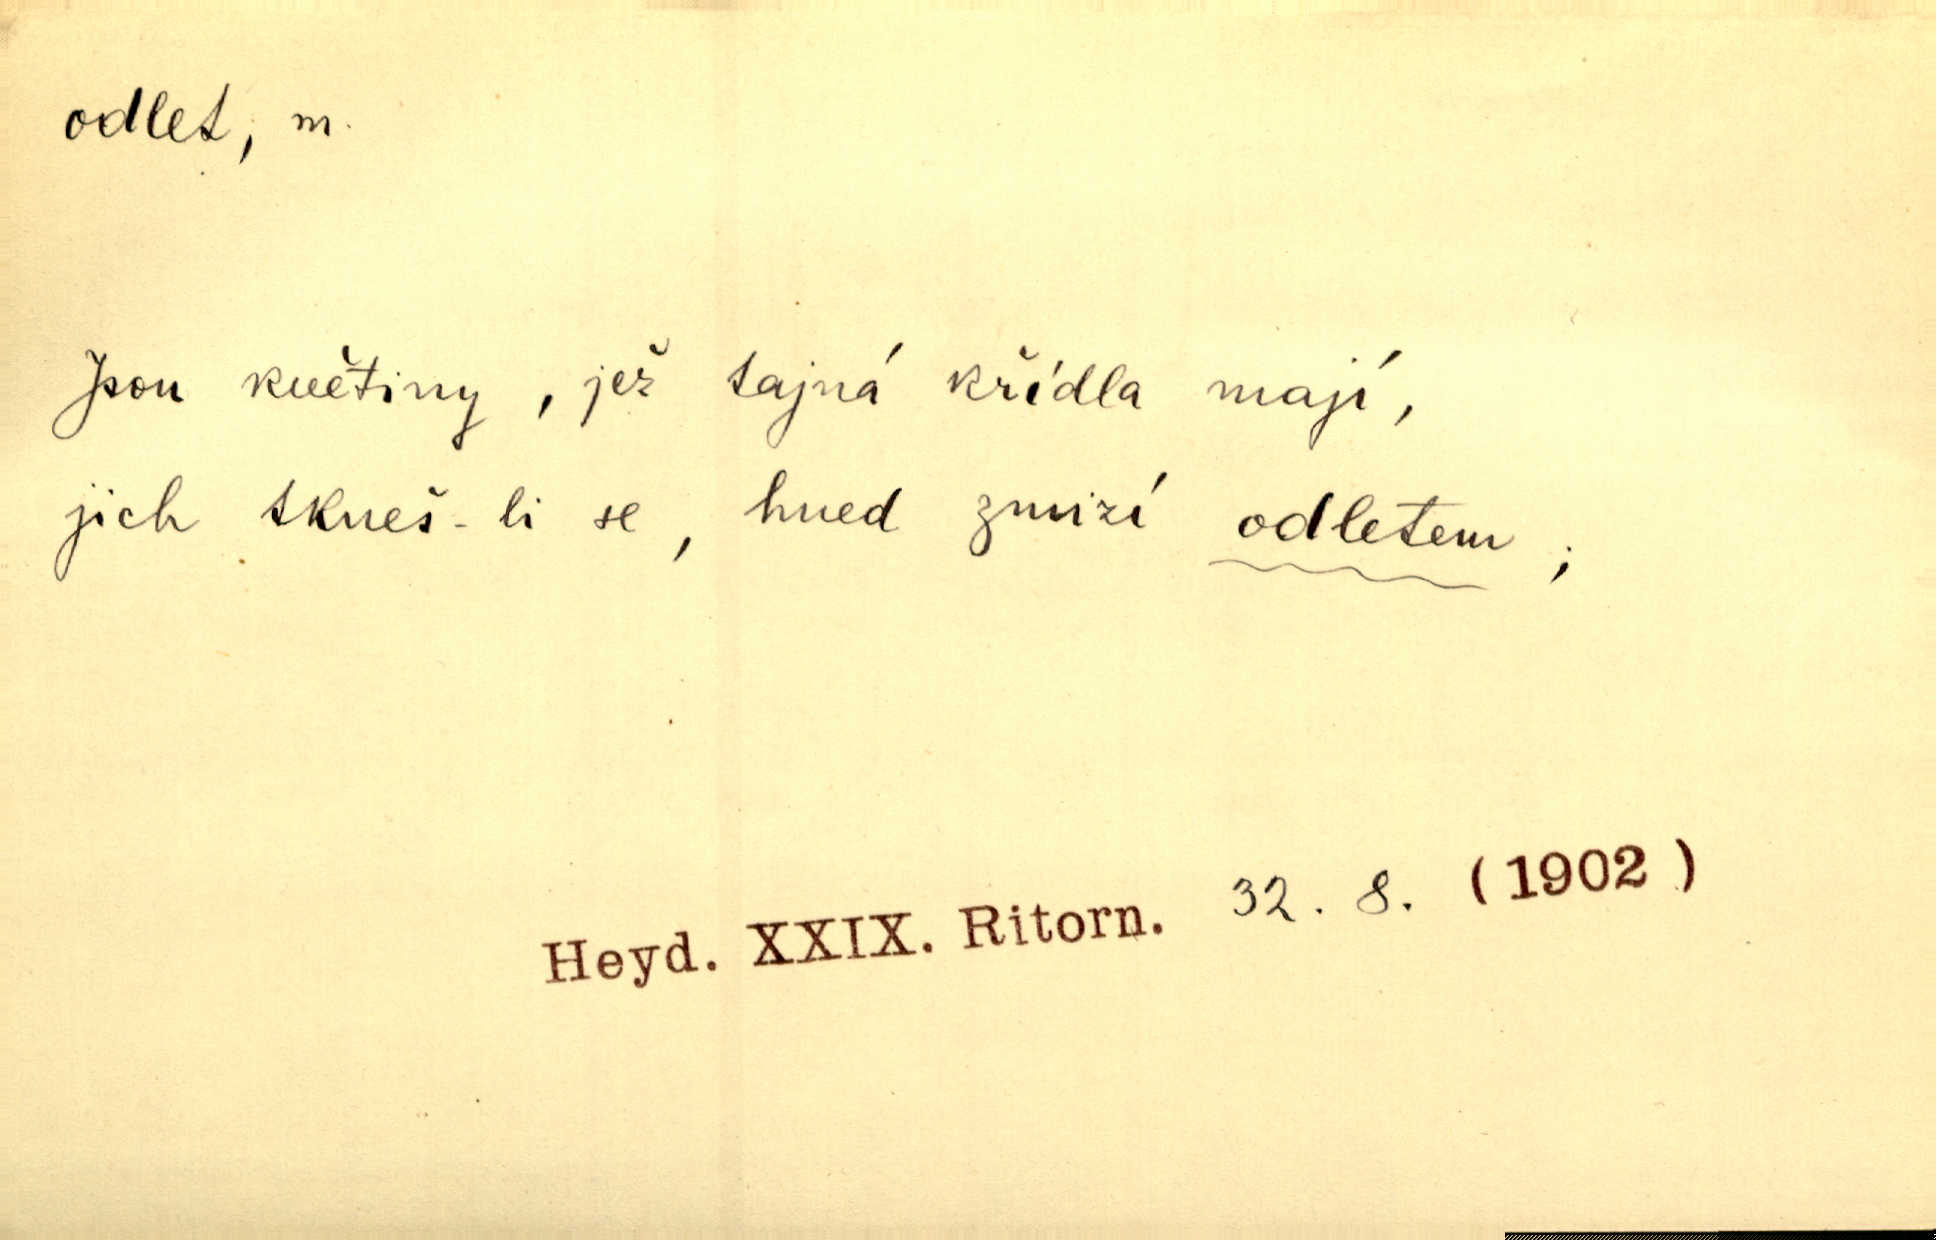 odlet, m.
Jsou květiny, jež tajná křídla mají,
jich tkneš-li se, hned zmizí odletem;
Heyd. XXIX. Ritorn. 32. 8. (1902)